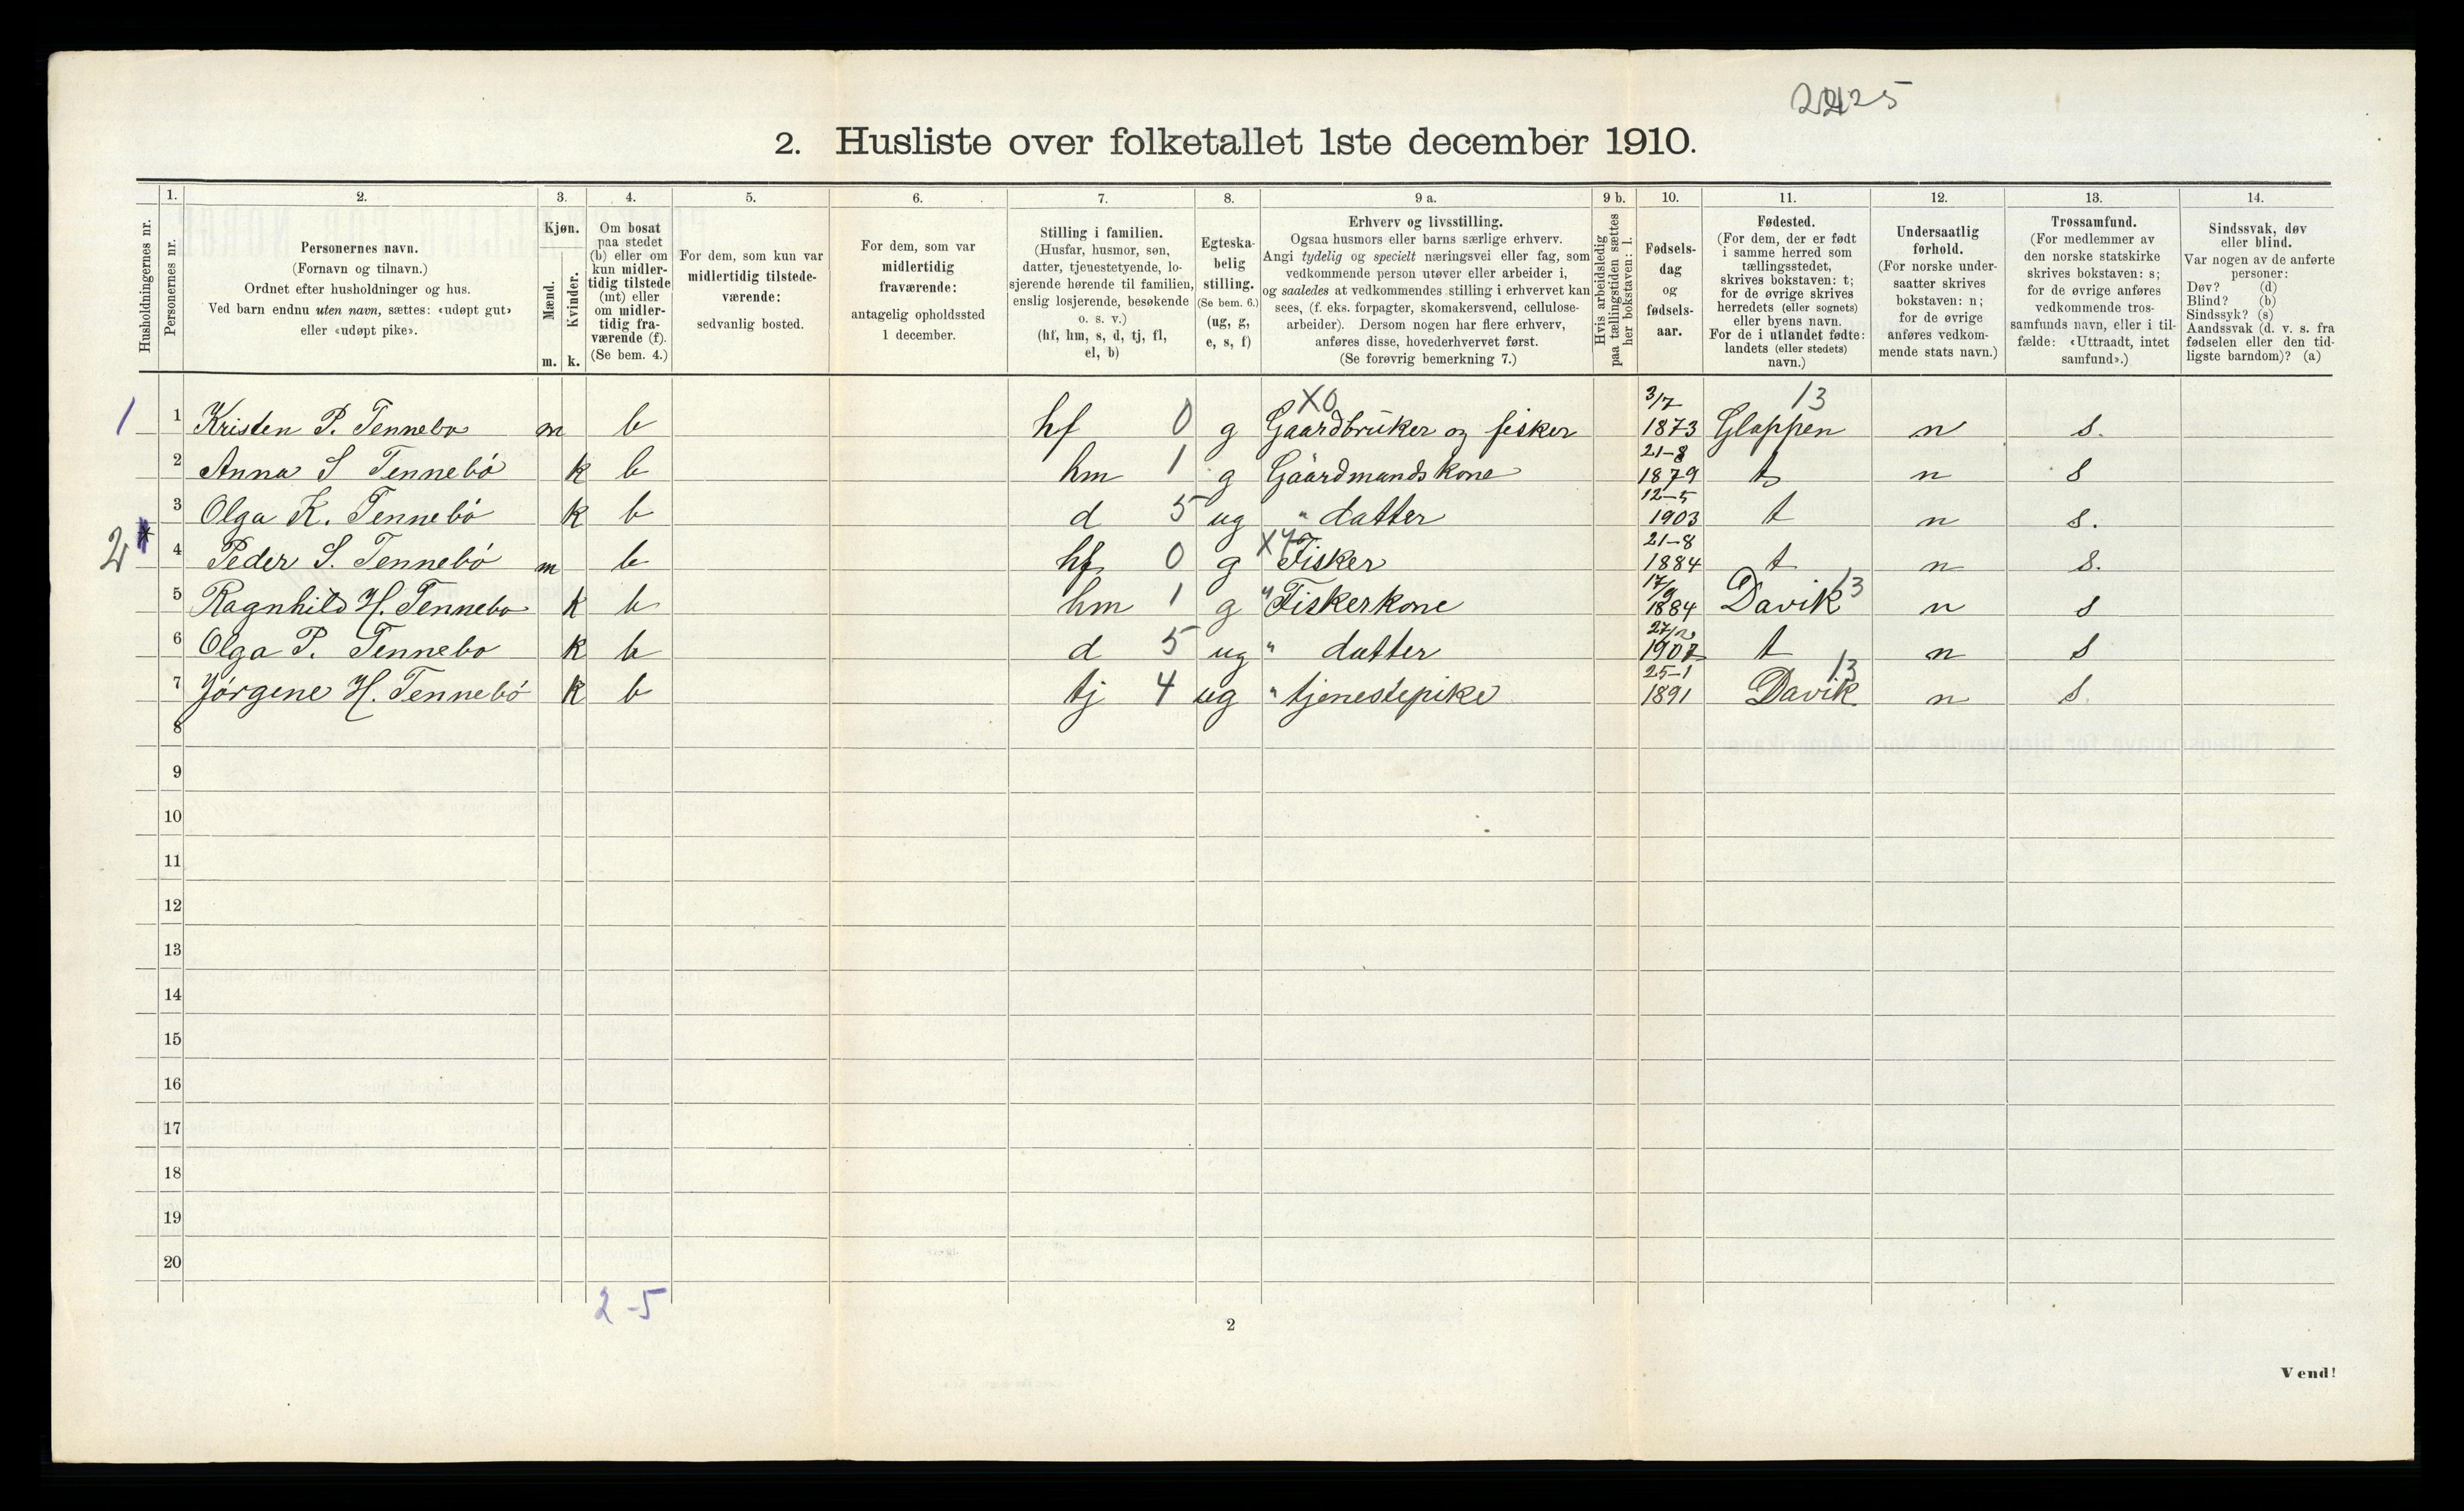 2425
2. Husliste over folketallet 1ste december 1910.
Husholdningernes nr.
1. Personernes nr.
2. Personernes navn.
(Fornavn og tilnavn.)
Ordnet efter husholdninger og hus.
Ved barn endnu uten navn, sættes: «udøpt gut»
eller «udøpt pike».
3. Kjøn.
Mænd. m.
Kvinder. k.
4. Om bosat
paa stedet
(b) eller om
kun midler-
tidig tilstede
(mt) eller
om midler-
tidig fra-
værende (f).
(Se bem. 4.)
5. For dem, som kun var
midlertidig tilstede-
værende:
sedvanlig bosted.
6. For dem, som var
midlertidig
fraværende:
antagelig opholdssted
1 december.
7. Stilling i familien.
(Husfar, husmor, søn,
datter, tjenestetyende, lo-
sjerende hørende til familien,
enslig losjerende, besøkende
o. s. v.)
(hf, hm, s, d, tj, fl,
el, b)
8. Egteska-
belig
stilling.
(Se bem. 6.)
(ug, g,
e, s, f)
9 a. Erhverv og livsstilling.
Ogsaa husmors eller barns særlige erhverv.
Angi tydelig og specielt næringsvei eller fag, som
vedkommende person utøver eller arbeider i,
og saaledes at vedkommendes stilling i erhvervet kan
sees, (f. eks. forpagter, skomakersvend, cellulose-
arbeider). Dersom nogen har flere erhverv,
anføres disse, hovederhvervet først.
(Se forøvrig bemerkning 7.)
9 b. Hvis arbeidsledig
paa tællingstiden sættes
her bokstaven: l.
10. Fødsels-
dag
og
fødsels-
aar.
11. Fødested.
(For dem, der er født
i samme herred som
tællingsstedet,
skrives bokstaven: t;
for de øvrige skrives
herredets (eller sognets)
eller byens navn.
For de i utlandet fødte:
landets (eller stedets)
navn.)
12. Undersaatlig
forhold.
(For norske under-
saatter skrives
bokstaven: n;
for de øvrige
anføres vedkom-
mende stats navn.)
13. Trossamfund.
(For medlemmer av
den norske statskirke
skrives bokstaven: s;
for de øvrige anføres
vedkommende tros-
samfunds navn, eller i til-
fælde: «Uttraadt, intet
samfund».)
14. Sindssvak, døv
eller blind.
Var nogen av de anførte
personer:
Døv? (d)
Blind? (b)
Sindssyk? (s)
Aandssvak (d. v. s. fra
fødselen eller den tid-
ligste barndom)? (a)
1 1 Kristen P. Tennebø m b hf 0 g XO Gaardbruker og fisker 3/7 1873 Gloppen 13 n s.
2 Anna S Tennebö k b hm 1 g Gaardmandskone 21-8 1879 t n s
3 Olga K. Tennebö k b d 5 ug " datter 12-5 1903 t n s.
2 4 Peder S. Tennebö m b hf 0 g Fisker 21-8 1884 t n s.
5 Ragnhild H. Tennebo k b hm 1 g " Fiskerkone 17/9 1884 Davik 13 n s
6 Olga P. Tennebo k b d 5 ug " datter 1907 t n s
7 Jörgene H. Tennebö k b tj 4 ug " tjenestepike 25-1 1891 Davik 13 n s.
8
9
10
11
12
13
14
15
16
17
18
19
20
2-5
2
Vend!